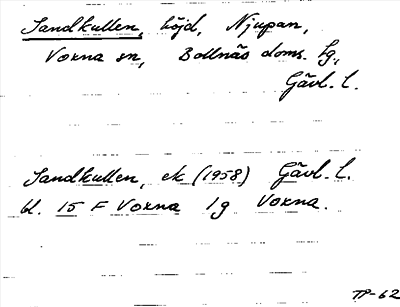 Sandkullen, höjd, Njupan,
Voxna sn, Bollnäs doms. tg.,
Gävl. l.
Sandkullen, ek (1958) Gävl. l.
bl. 15 F Voxna 1g Voxna.
TP-62